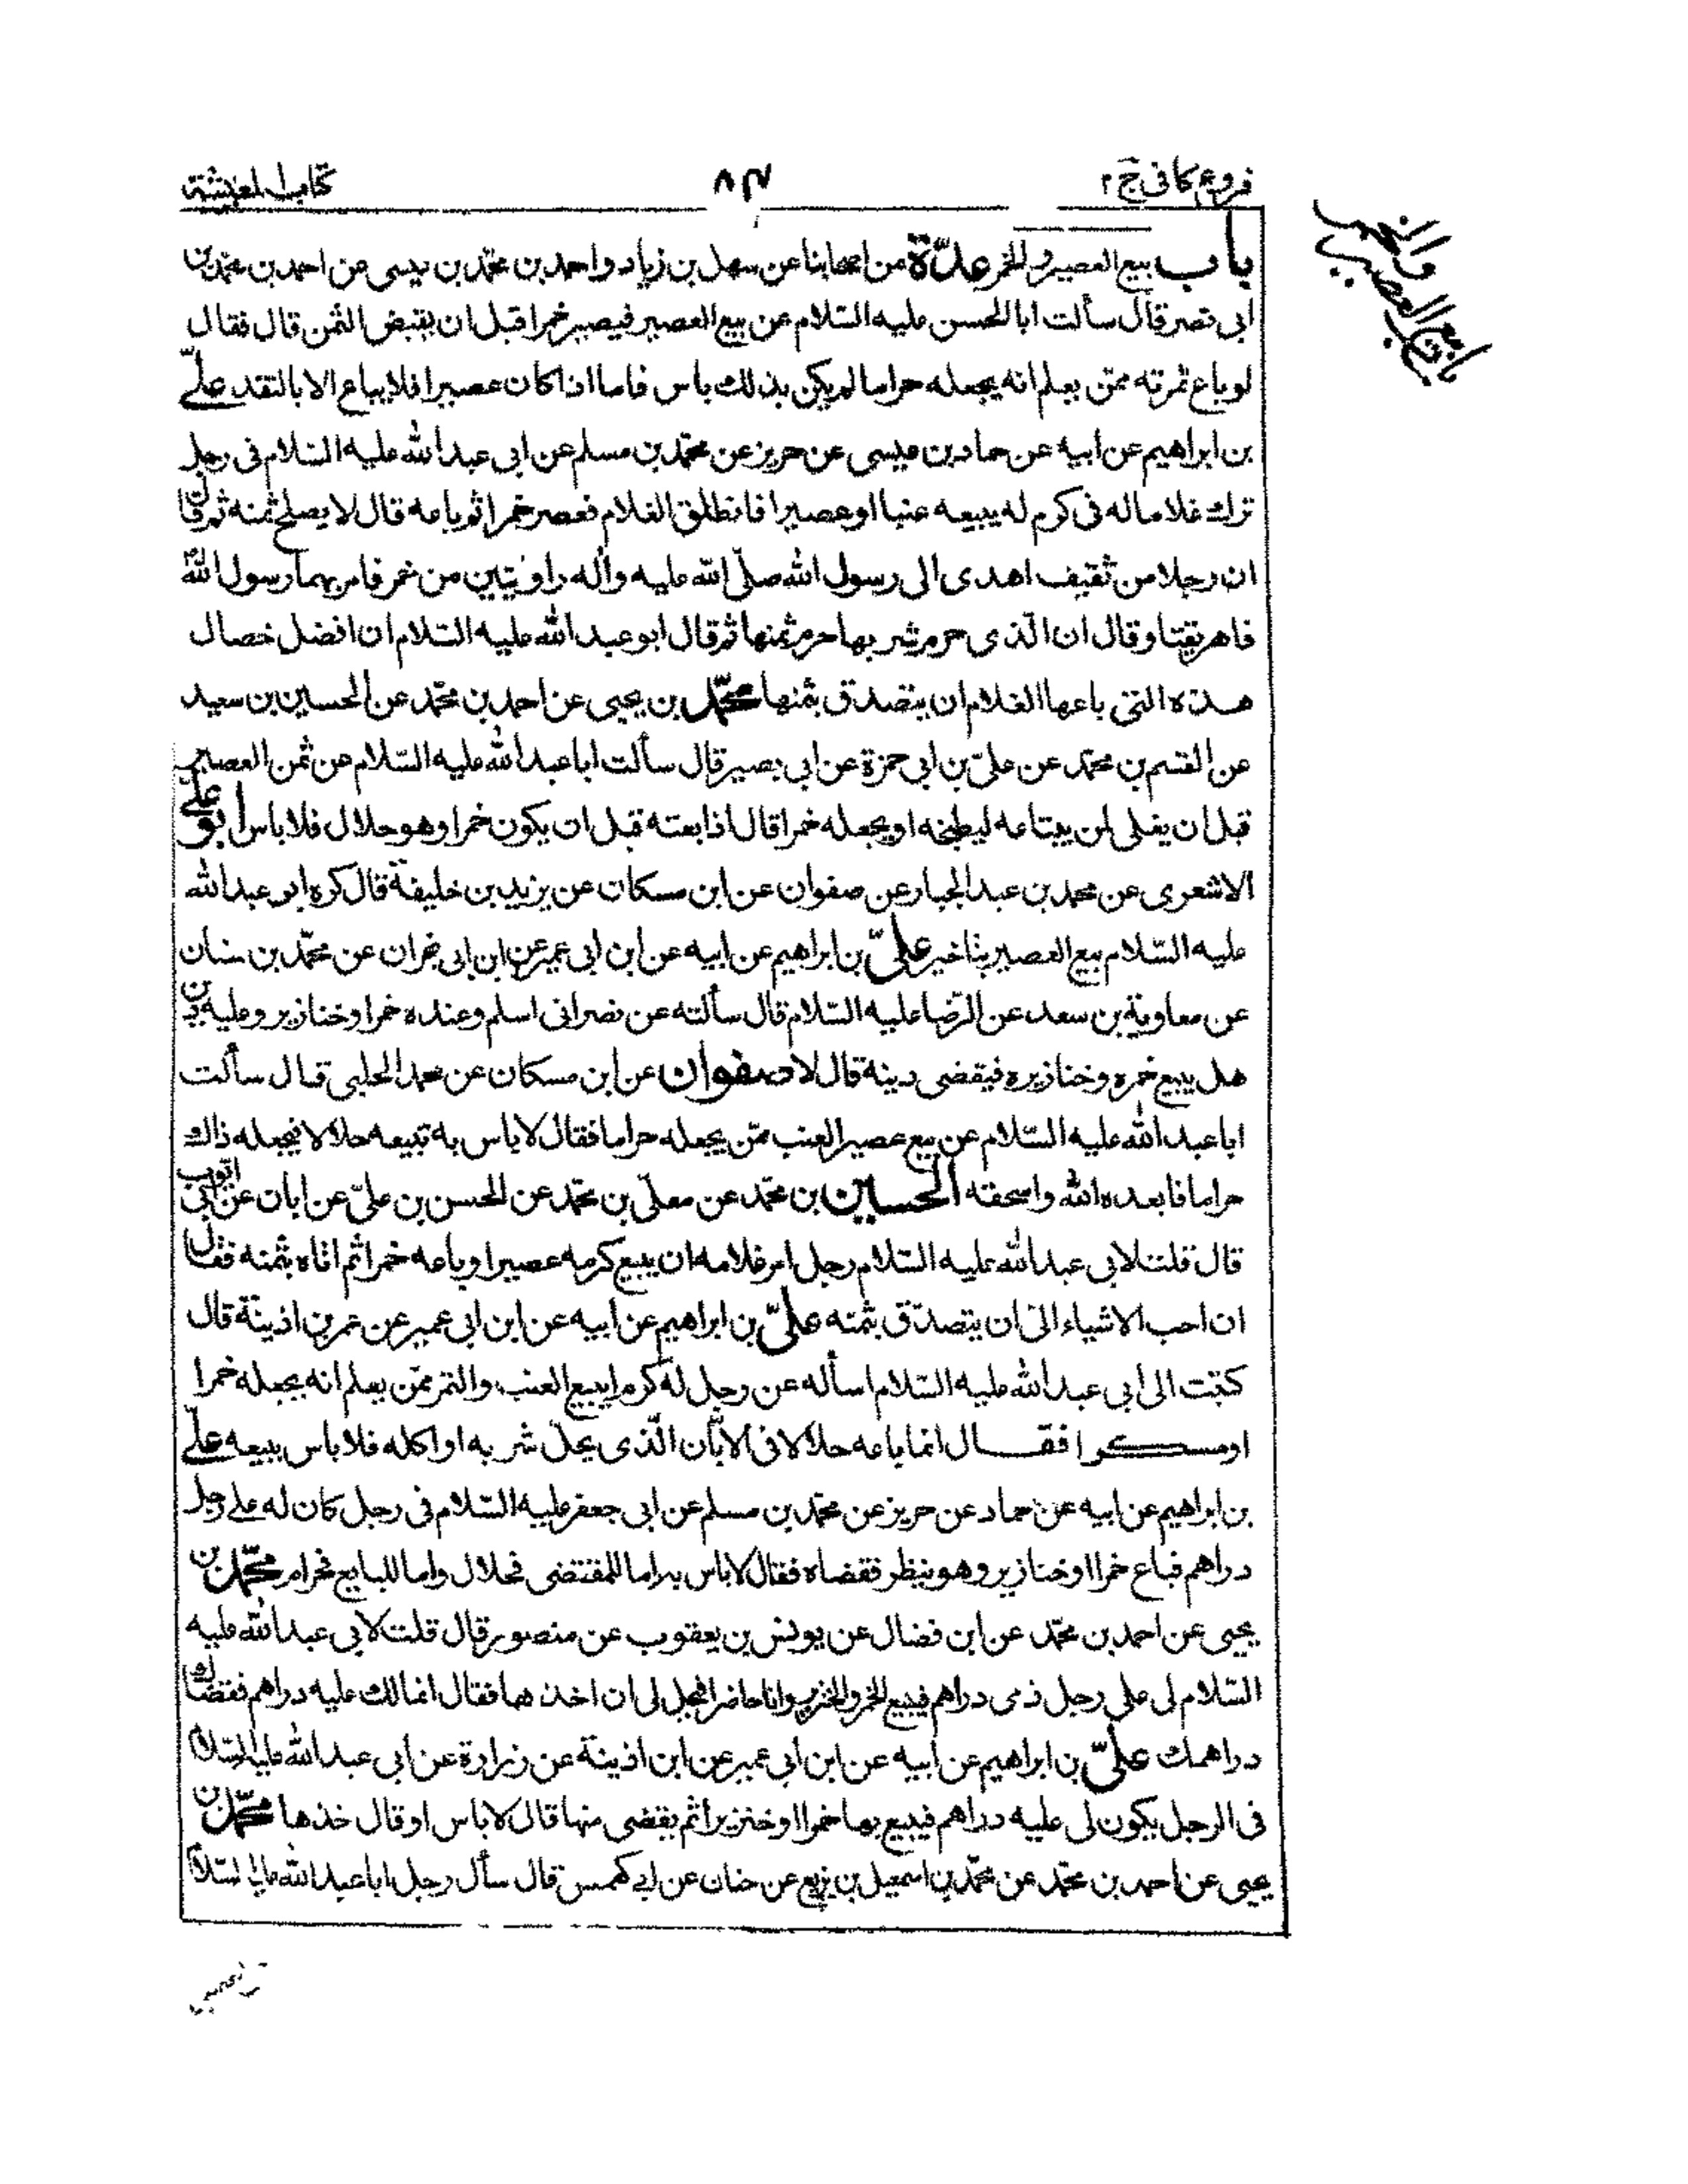 فروع كافى ج ٢
كتاب المعيشة
باب بيع العصير والخمر
باب بيع العصير والخمر عدّة من اصحابنا عن سهل بن زياد واحمد بن محمّد بن عيسى عن احمد بن محمّد بن
ابى نصر قال سألت ابا الحسن عليه السّلام عن بيع العصير فيصير خمرا قبل ان يقبض الثمن قال فقال
لو باع ثمرته ممّن يعلم انه يجعله حراما لم يكن بذلك باس فاما اذا كان عصيرا فلا يباع الا بالنقد علىّ
بن ابراهيم عن ابيه عن حماد بن عيسى عن حريز عن محمّد بن مسلم عن ابى عبد الله عليه السّلام فى رجل
ترك غلاما له فى كرم له يبيعه عنبا او عصيرا فانطلق الغلام فعصر خمرا ثم باعه قال لا يصلح ثمنه ثم قال
ان رجلا من ثقيف اهدى الى رسول الله صلّى الله عليه وآله راويتين من خمر فامر بهما رسول الله
فاهريقتا وقال ان الّذى حرم شربها حرم ثمنها ثم قال ابو عبد الله عليه السّلام ان افضل خصال
هذه التى باعها الغلام ان يتصدق بثمنها محمّد بن يحيى عن احمد بن محمّد عن الحسين بن سعيد
عن القسم بن محمّد عن علىّ بن ابى حمزة عن ابى بصير قال سألت ابا عبد الله عليه السّلام عن ثمن العصير
قبل ان يغلى لمن يبتاعه ليطبخه او يجعله خمرا قال اذا بعته قبل ان يكون خمرا وهو حلال فلا باس ابو على
الاشعرى عن محمد بن عبد الجبار عن صفوان عن ابن مسكان عن يزيد بن خليفة قال كره ابو عبد الله
عليه السّلام بيع العصير بتاخير علىّ بن ابراهيم عن ابيه عن ابن ابى عمير عن ابن ابى نجران عن محمّد بن سنان
عن معاوية بن سعد عن الرّضا عليه السّلام قال سألته عن نصرانى اسلم وعنده خمر او خنازير وعليه دين
هل يبيع خمره وخنازيره فيقضى دينه قال لا صفوان عن ابن مسكان عن محمد الحلبى قال سألت
ابا عبد الله عليه السّلام عن بيع عصير العنب ممّن يجعله حراما فقال لا باس به تبيعه حلالا فيجعله ذاك
حراما فابعده الله واسحقه الحسين بن محمّد عن معلّى بن محمّد عن الحسن بن علىّ عن ابان عن ابى ايّوب
قال قلت لابى عبد الله عليه السّلام رجل امر غلامه ان يبيع كرمه عصيرا وباعه خمرا ثم اتاه بثمنه فقال
ان احب الاشياء الىّ ان يتصدّق بثمنه علىّ بن ابراهيم عن ابيه عن ابن ابى عمير عن عمر بن اذينة قال
كتبت الى ابى عبد الله عليه السّلام اساله عن رجل له كرم ايبيع العنب والتمر ممّن يعلم انه يجعله خمرا
او مسكرا فقال انما باعه حلالا فى الابّان الّذى يحلّ شربه او اكله فلا باس ببيعه علىّ
بن ابراهيم عن ابيه عن حماد عن حريز عن محمّد بن مسلم عن ابى جعفر عليه السّلام فى رجل كان له على رجل
دراهم فباع خمرا او خنازير وهو ينظر فقضاه فقال لا باس به اما للمقتضى فحلال واما للبايع فحرام محمّد بن
يحيى عن احمد بن محمّد عن ابن فضال عن يونس بن يعقوب عن منصور قال قلت لابى عبد الله عليه
السّلام لى على رجل ذمى دراهم فيبيع الخمر والخنزير وانا حاضر افيحل لى ان اخذها فقال انما لك عليه دراهم فقضاك
دراهمك علىّ بن ابراهيم عن ابيه عن ابن ابى عمير عن ابن اذينة عن زرارة عن ابى عبد الله عليه السّلام
فى الرجل يكون لى عليه دراهم فيبيع بها خمرا او خنزيرا ثم يقضى منها قال لا باس او قال خذها محمّد بن
يحيى عن احمد بن محمّد عن محمّد بن اسمعيل بن بزيع عن حنان عن ابى كهمس قال سأل رجل ابا عبد الله عليه السّلام